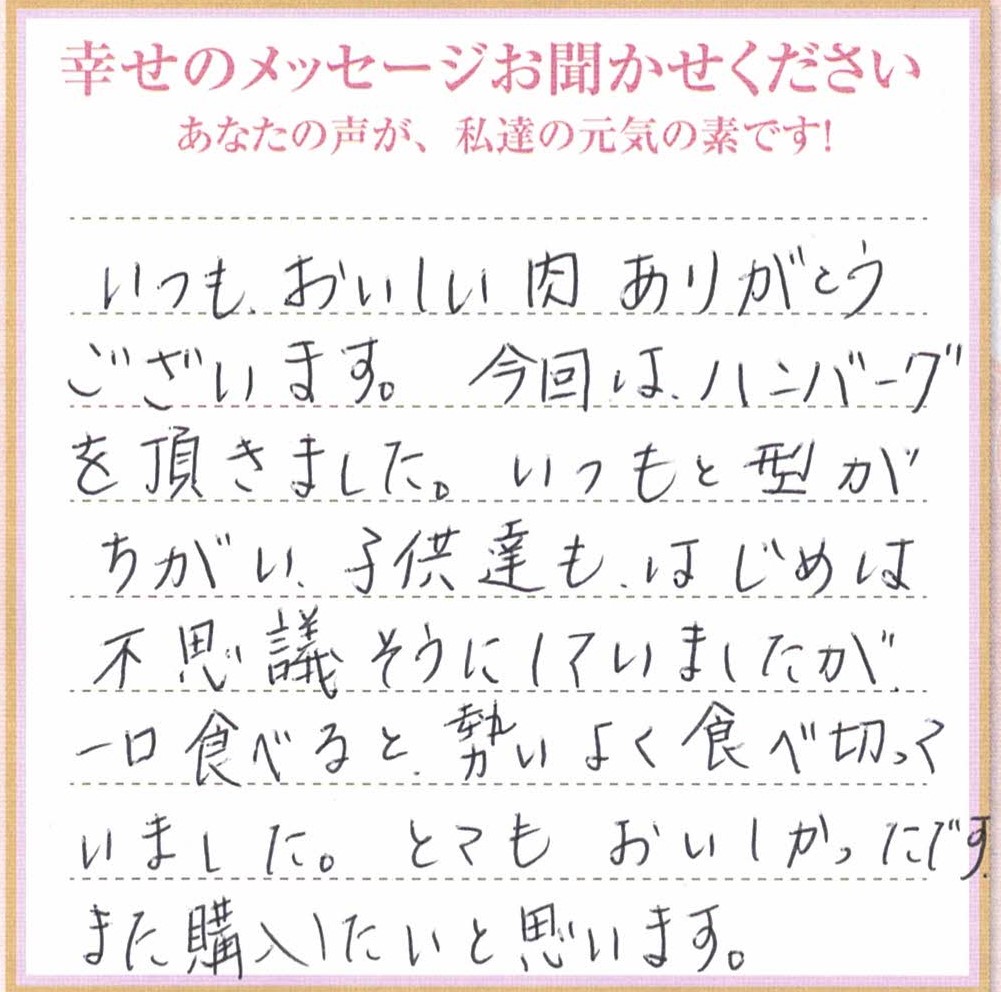 幸せのメッセージお聞かせください
あなたの声が、私達の元気の素です!
いつも、おいしい肉ありがとう
ございます。今回は、ハンバーグ
を頂きました。いつもと型が
ちがい、子供達も、はじめは
不思議そうにしていましたが、
一口食べると、勢いよく食べ切って
いました。とてもおいしかったです。
また購入したいと思います。